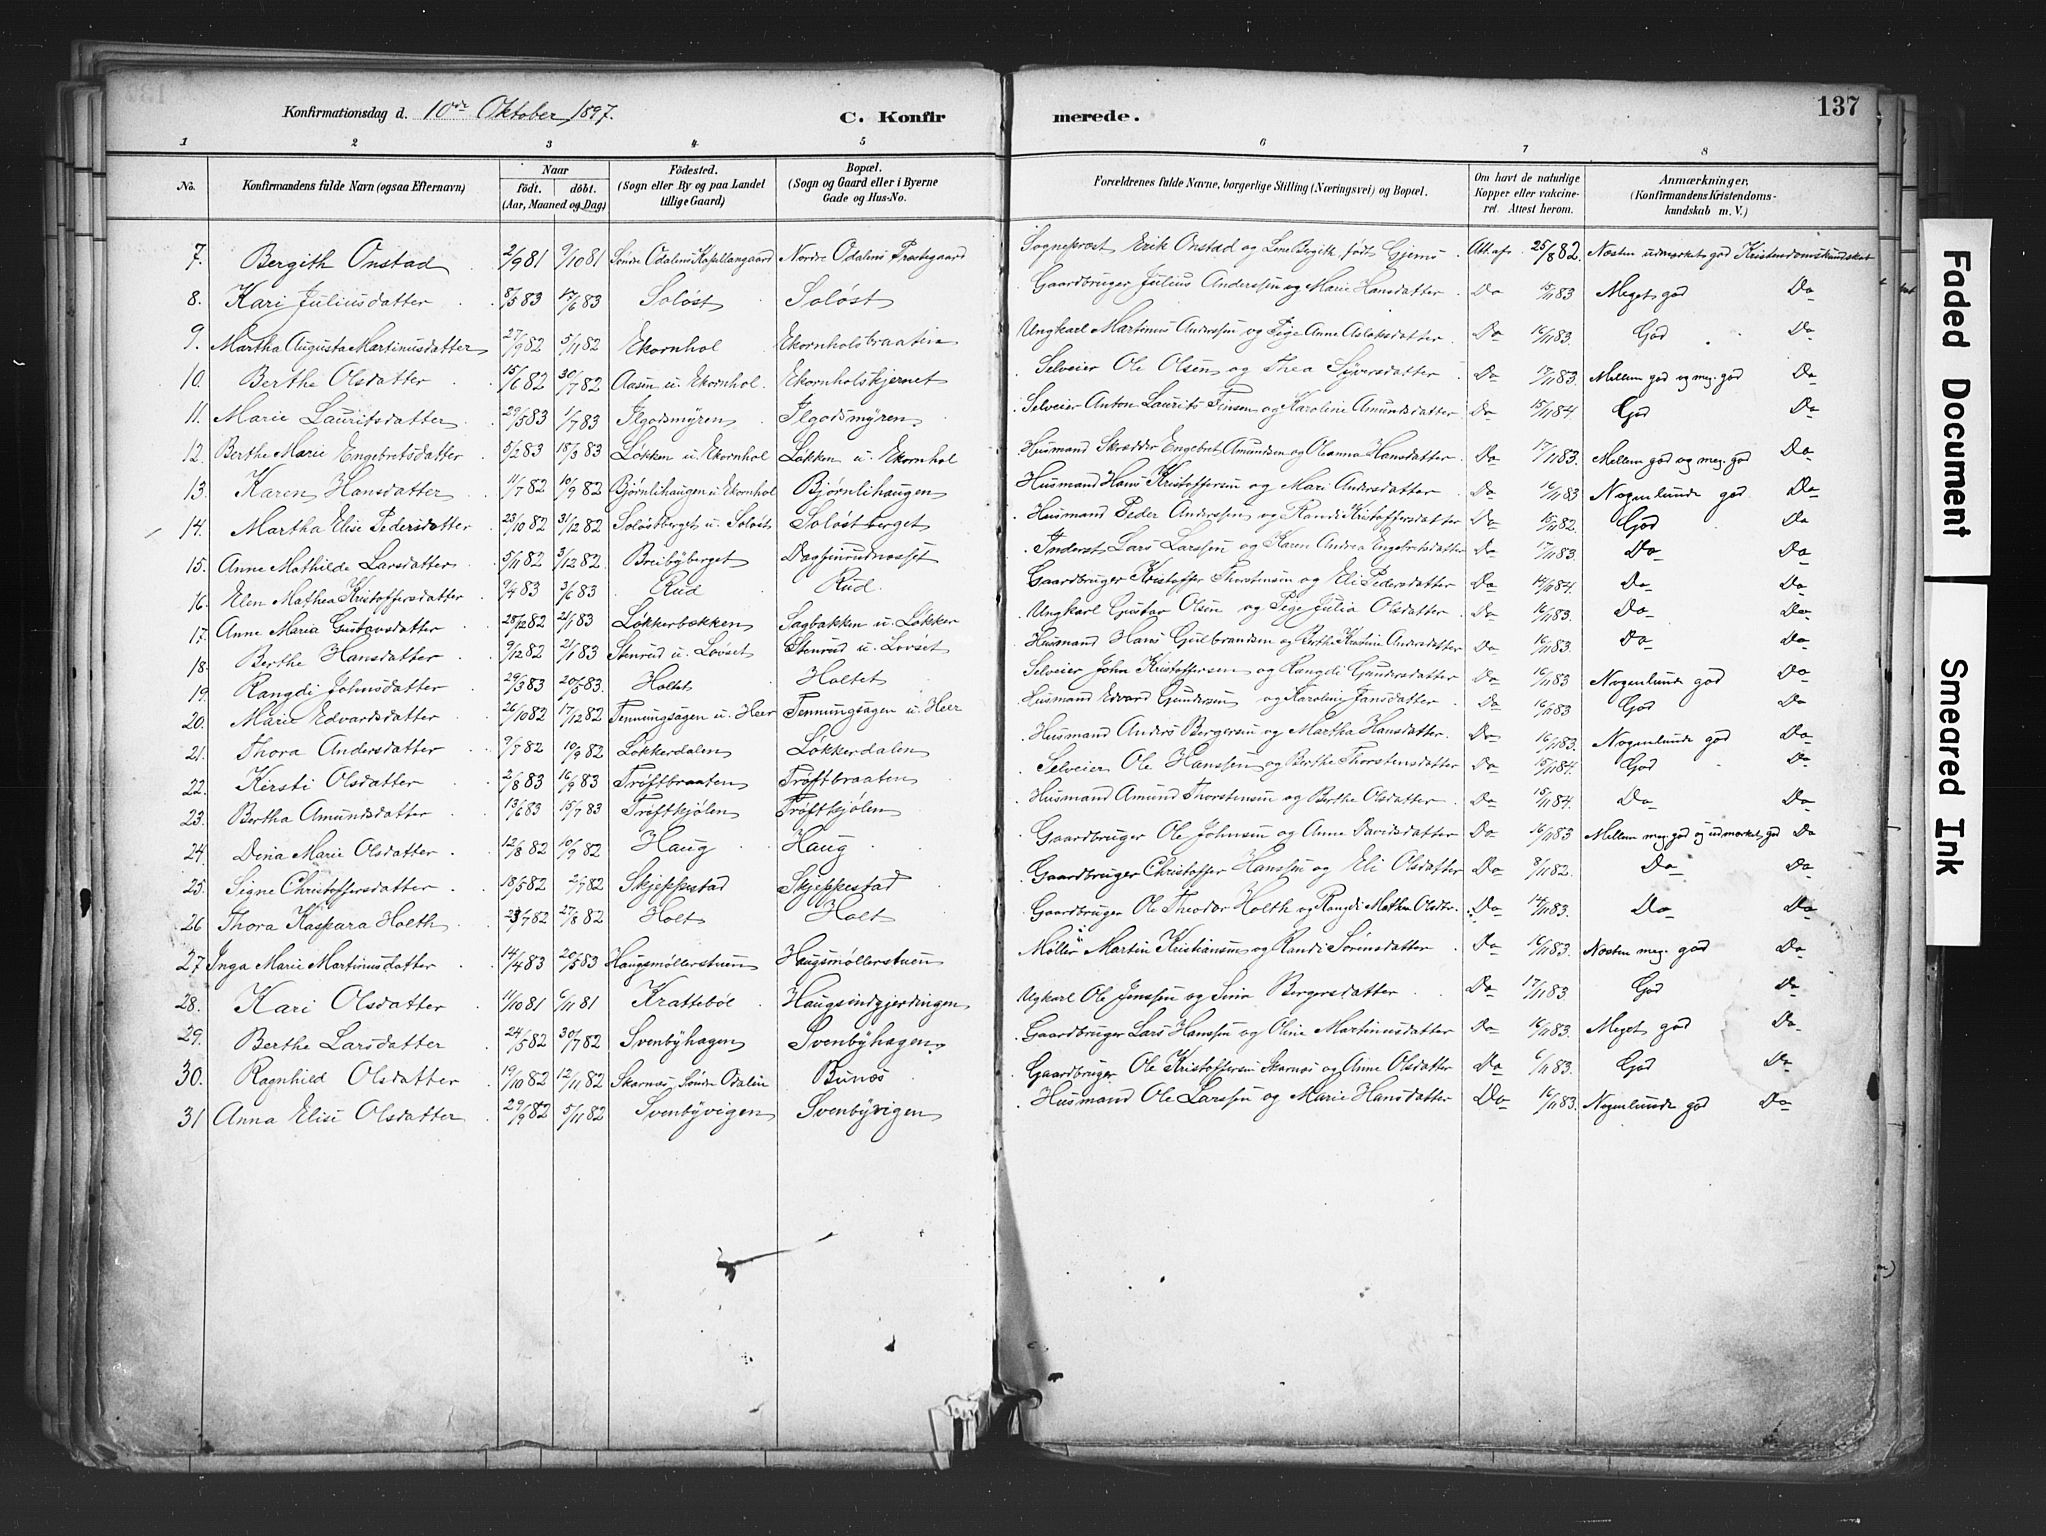 Konfirmationsdag d. 10de Oktober 1897.
C. Konfirmerede.
137
1 2 3 4 5 6 7 8
No. Konfirmandens fulde Navn (ogsaa Efternavn) Naar födt. döbt. (Aar, Maaned og Dag) Födested. (Sogn eller By og paa Landet tillige Gaard) Bopæl. (Sogn og Gaard eller i Byerne Gade og Hus-No. Forældrenes fulde Navne, borgerlige Stilling (Næringsvei) og Bopæl. Om havt de naturlige Kopper eller vakcineret. Attest herom. Anmærkninger, (Konfirmandens Kristendomskundskab m. V.)
7. Bergith Onstad 2/9 81 9/10 81 Søndre Odalens Kapellangaard Nordre Odalens Præstegaard Sogneprest Erik Onstad og Lene Bergith, født Gjems Att. af 25/8 82. Næsten udmerket god Kristendomskundskab
8. Kari Juliusdatter 8/5 83 17/6 83 Soløst Soløst Gaardbruger Julius Anderssen og Marie Hansdatter Do 15/11 83 Meget god Do
9. Martha Augusta Martinusdatter 27/9 82 5/11 82 Ekornhol Ekornholsbraatin Ungkarl Martinus Anderssen og Pige Anne Aslaksdatter Do 16/11 83. God Do
10. Berthe Olsdatter 15/6 82 30/7 82 Aasen u. Ekornhol. Ekornholskjernet Selveier Ole Olsen og Thea Syversdatter Do 17/11 83. Mellem god og meg. god Do
11. Marie Lauritsdatter 29/5 83 1/7 83 Ilgodsmyren Ilgodsmyren Selveier Anton Laurits Finsen og Karoline Amundsdatter Do 15/11 84. God Do
12. Berthe Marie Engebretsdatter 5/2 83 18/3 83 Løkken u. Ekornhol Løkken u. Ekornhol Husmand Skrædder Engebret Amundsen og Oleanna Hansdatter Do 17/11 83. Mellem god og meg. god Do
13. Karen Hansdatter 11/7 82 10/9 82 Bjørnlihaugen u. Ekornhol Bjørnlihaugen Husmand Hans Kristoffersen og Mari Andersdatter Do 16/11 83 Nogenlunde god Do
14. Martha Elise Pedersdatter 23/10 82 31/12 82 Soløstberget u. Soløst Soløstberget Husmand Peder Anderssen og Randi Kristoffersdatter Do 15/11 82. God Do
15. Anne Mathilde Larsdatter 5/11 82 3/12 82. Breibyberget Dagfinrudnesset Inderst Lars Larssen og Karen Andrea Engebretsdatter Do 17/11 83. Do Do
16. Elen Mathea Kristoffersdatter 9/4 83 3/6 83 Rud Rud. Gaardbruger Kristoffer Thorstensen og Eli Pedersdatter Do 14/11 84. Do Do
17. Anne Maria Gustavsdatter 28/12 82 21/1 83 Løkkerbækken Sagbakken u. Løkker Ungkarl Gustav Olsen og Pige Julia Olsdatter Do 16/11 83. Do Do
18. Berthe Hansdatter 9/12 82 21/1 83 Stenrud u. Lovset Stenrud u. Lovset Husmand Hans Gulbrandsen og Berthe Kristine Andersdatter Do 16/11 83. Do Do
19. Rangdi Johnsdatter 29/3 83 20/5 83. Holtet Holtet Selveier John Kristoffersen og Rangdi Gundersdatter Do 16/11 83 Nogenlunde god Do
20. Marie Edvardsdatter 26/10 82 17/12 82 Tenningsagen u. Heer Tenningsagen u. Heer Husmand Edvard Gundersen og Karoline Jansdatter Do 16/11 83. God Do
21. Thora Andersdatter 9/7 82 10/9 82 Løkkerdalen Løkkerdalen Husmand Anders Bergersen og Martha Hansdatter. Do 16/11 83. Nogenlunde god Do
22. Kersti Olsdatter 2/8 83 16/9 83 Trøftbraaten Trøftbraaten Selveier Ole Hanssen og Berthe Thorstensdatter Do 15/11 84. God Do
23. Bertha Amundsdatter 13/6 83 15/7 83 Trøftkjølen Trøftkjølen Husmand Amund Thorstensen og Berthe Olsdatter Do 15/11 84. Do Do
24. Dina Marie Olsdatter 12/8 82 10/9 82 Haug Haug Gaardbruger Ole Johnsen og Anne Davidsdatter Do 16/11 83 Mellem meg. god og udmerket god Do
25. Signe Christoffersdatter 18/5 82 2/7 82 Skjeppestad Skjeppestad Gaardbruger Christoffer Hanssen og Eli Olsdatter Do 8/11 82. Do Do
26 Thora Kaspara Holth 23/7 82 27/8 82 Holt Holt Gaardbruger Ole Theodor Holth og Rangdi Mathea Olsdtr. Do 14/11 83. Do Do
27 Inga Marie Martinusdatter 14/4 83 20/5 83 Haugsmøllerstuen Haugsmøllerstuen Møller Martin Kristiansen og Randi Sørensdatter Do 16/11 83. Næsten meg. god Do
28. Kari Olsdatter 11/10 81 6/11 81 Krattebøl Haugsindgjerdingen Ugkarl Ole Jenssen og Sina Bergersdatter Do 17/11 83. God Do
29. Berthe Larsdatter 24/5 82 30/7 82 Svenbyhagen Svenbyhagen Gaardbruger Lars Hanssen og Oline Martinusdatter Do 16/11 83. Meget god Do
30. Ragnhild Olsdatter 19/10 82 12/11 82 Skarnes Søndre Odalen Bunes Gaardbruger Ole Kristoffersen Skarnes og Anne Olsdatter Do 6/11 83. God Do
31 Anna Elise Olsdatter 29/9 82 5/11 82 Svenbyvigen Svenbyvigen Husmand Ole Larssen og Marie Hansdatter Do 16/11 83. Nogenlunde god Do
Faded Document
Smeared Ink